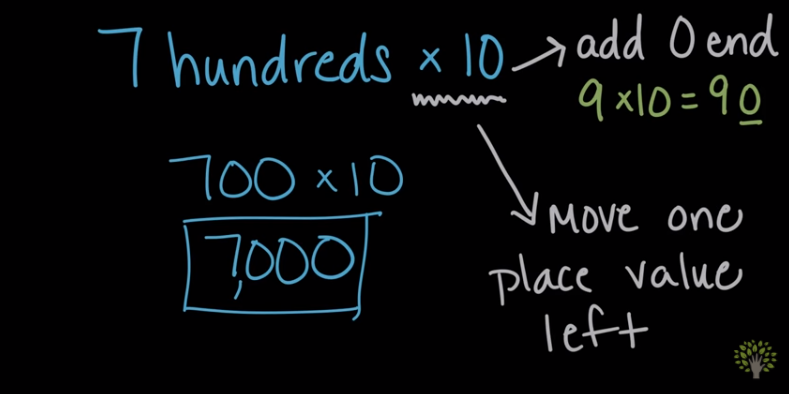 7 hundreds × 10 → add 0 end
9 × 10 = 90
700 × 10
7,000
Move one
place value
left